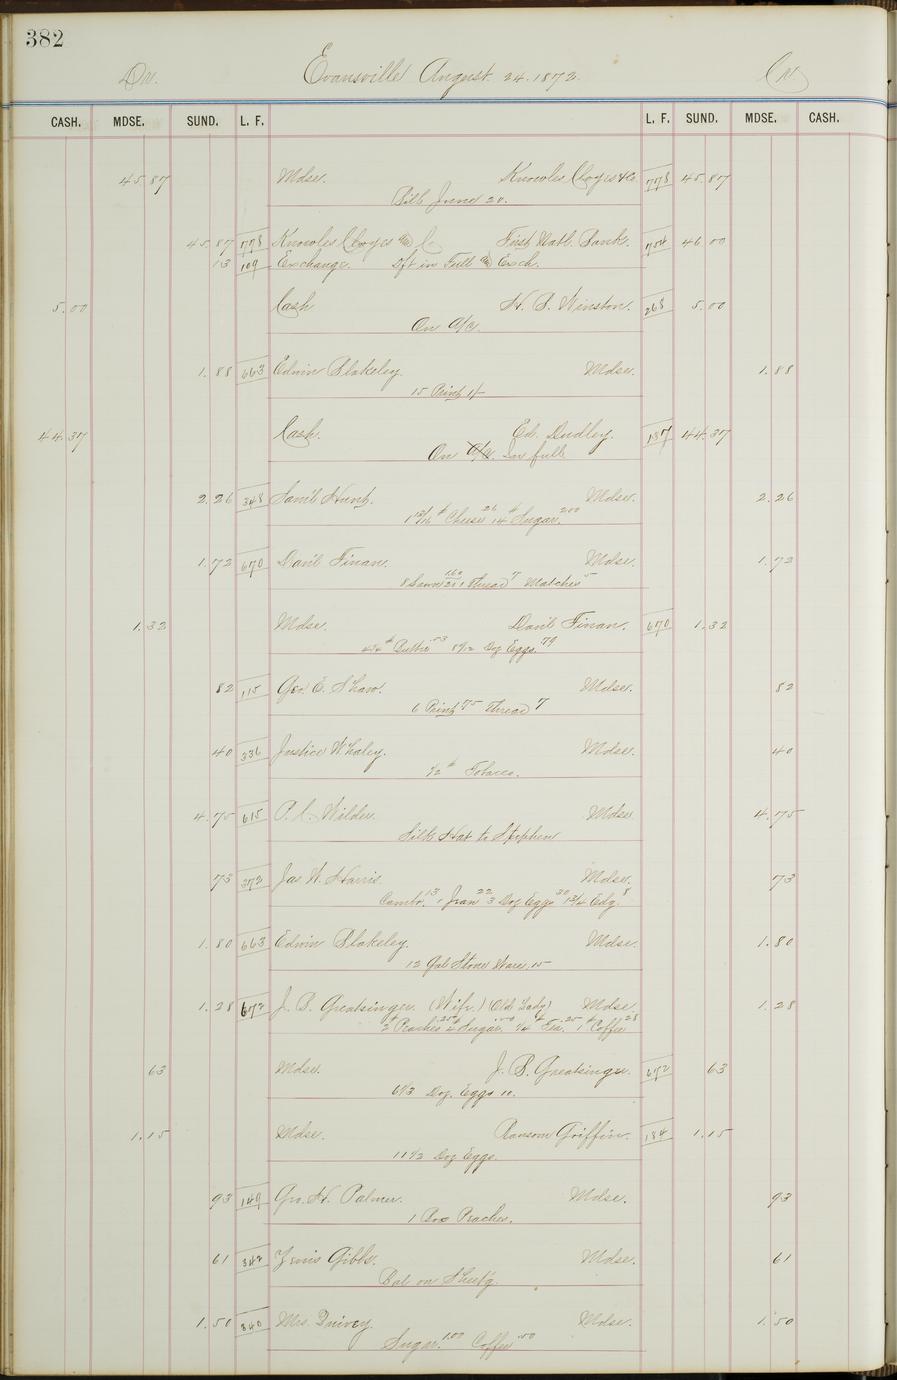 382
Dr. Evansville August 24. 1872. Cr
CASH. MDSE. SUND. L. F. L. F. SUND. MDSE. CASH.
45 87 Mdse. Knowles Cloyes & Co. 778 45.87
Bill June 20.
45.87 778 Knowles Cloyes & C First Natl. Bank. 754 46 00
13 109 Exchange. Dft in Full & Exch.
5.00 Cash H. B. Winston. 268 5.00
On a/c.
1.88 663 Edwin Blakeley. Mdse. 1.88
15 Print
44.37 Cash. Ed. Dudley. 137 44.37
On a/c. In full
2.26 348 Saml Hunt. Mdse. 2.26
1 13/16 # Cheese 26 14 # Sugar. 200
1.72 670 Danl Finan. Mdse. 1.72
8 1.60 1 Thread 7 Matches 5
1.32 Mdse. Danl Finan. 670 1.32
Butter .53 Doz Eggs. 79
82 115 Geo. E. Shaw. Mdse. 82
6 Print 75 Thread 7
40 336 Justice Whaley. Mdse. 40
1/2 # Tobacco.
4.75 615 P. C. Wilder. Mdse 4.75
Silk Hat to Stephen
73 372 Jas. W. Harris. Mdse. 73
Cambr. 13 1 Jean 22 3 Doz Eggs 30 Edg. 8
1.80 663 Edwin Blakeley. Mdse. 1.80
12 Gal Stone Ware. 15
1.28 672 J. B. Greatsinger. (Wife.) (Old Lady) Mdse. 1.28
2 # Peaches 25 4 # Sugar. .50 1/4 # Tea. 25 1 # Coffee 28
63 Mdse. J. B. Greatsinger. 672 63
6 1/3 Doz. Eggs 10.
1.15 Mdse. Ransom Griffin. 184 1.15
11 1/2 Doz Eggs.
93 149 Geo. H. Palmer. Mdse. 93
1 Box Peaches.
61 342 Gibbs. Mdse. 61
Bal on Sheet'g.
1.50 340 Mrs. Quivey. Mdse. 1.50
Sugar. 1.00 Coffee .50